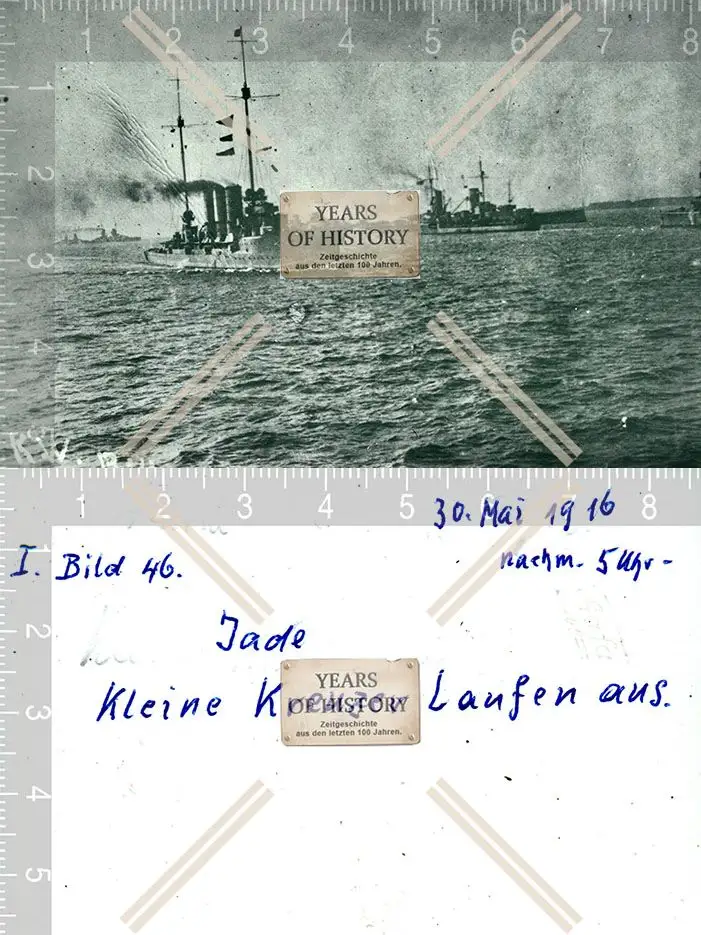 1 2 3 4 5 6 7 8
1
2
3
4
YEARS
OF HISTORY
Zeitgeschichte
aus den letzten 100 Jahren.
1 2 3 4 5 6 7 8
30. Mai 1916
I. Bild 46.
nachm. 5 Uhr-
Jade
Kleine Kreuzer Laufen aus.
YEARS
OF HISTORY
Zeitgeschichte
aus den letzten 100 Jahren.
1
2
3
4
5